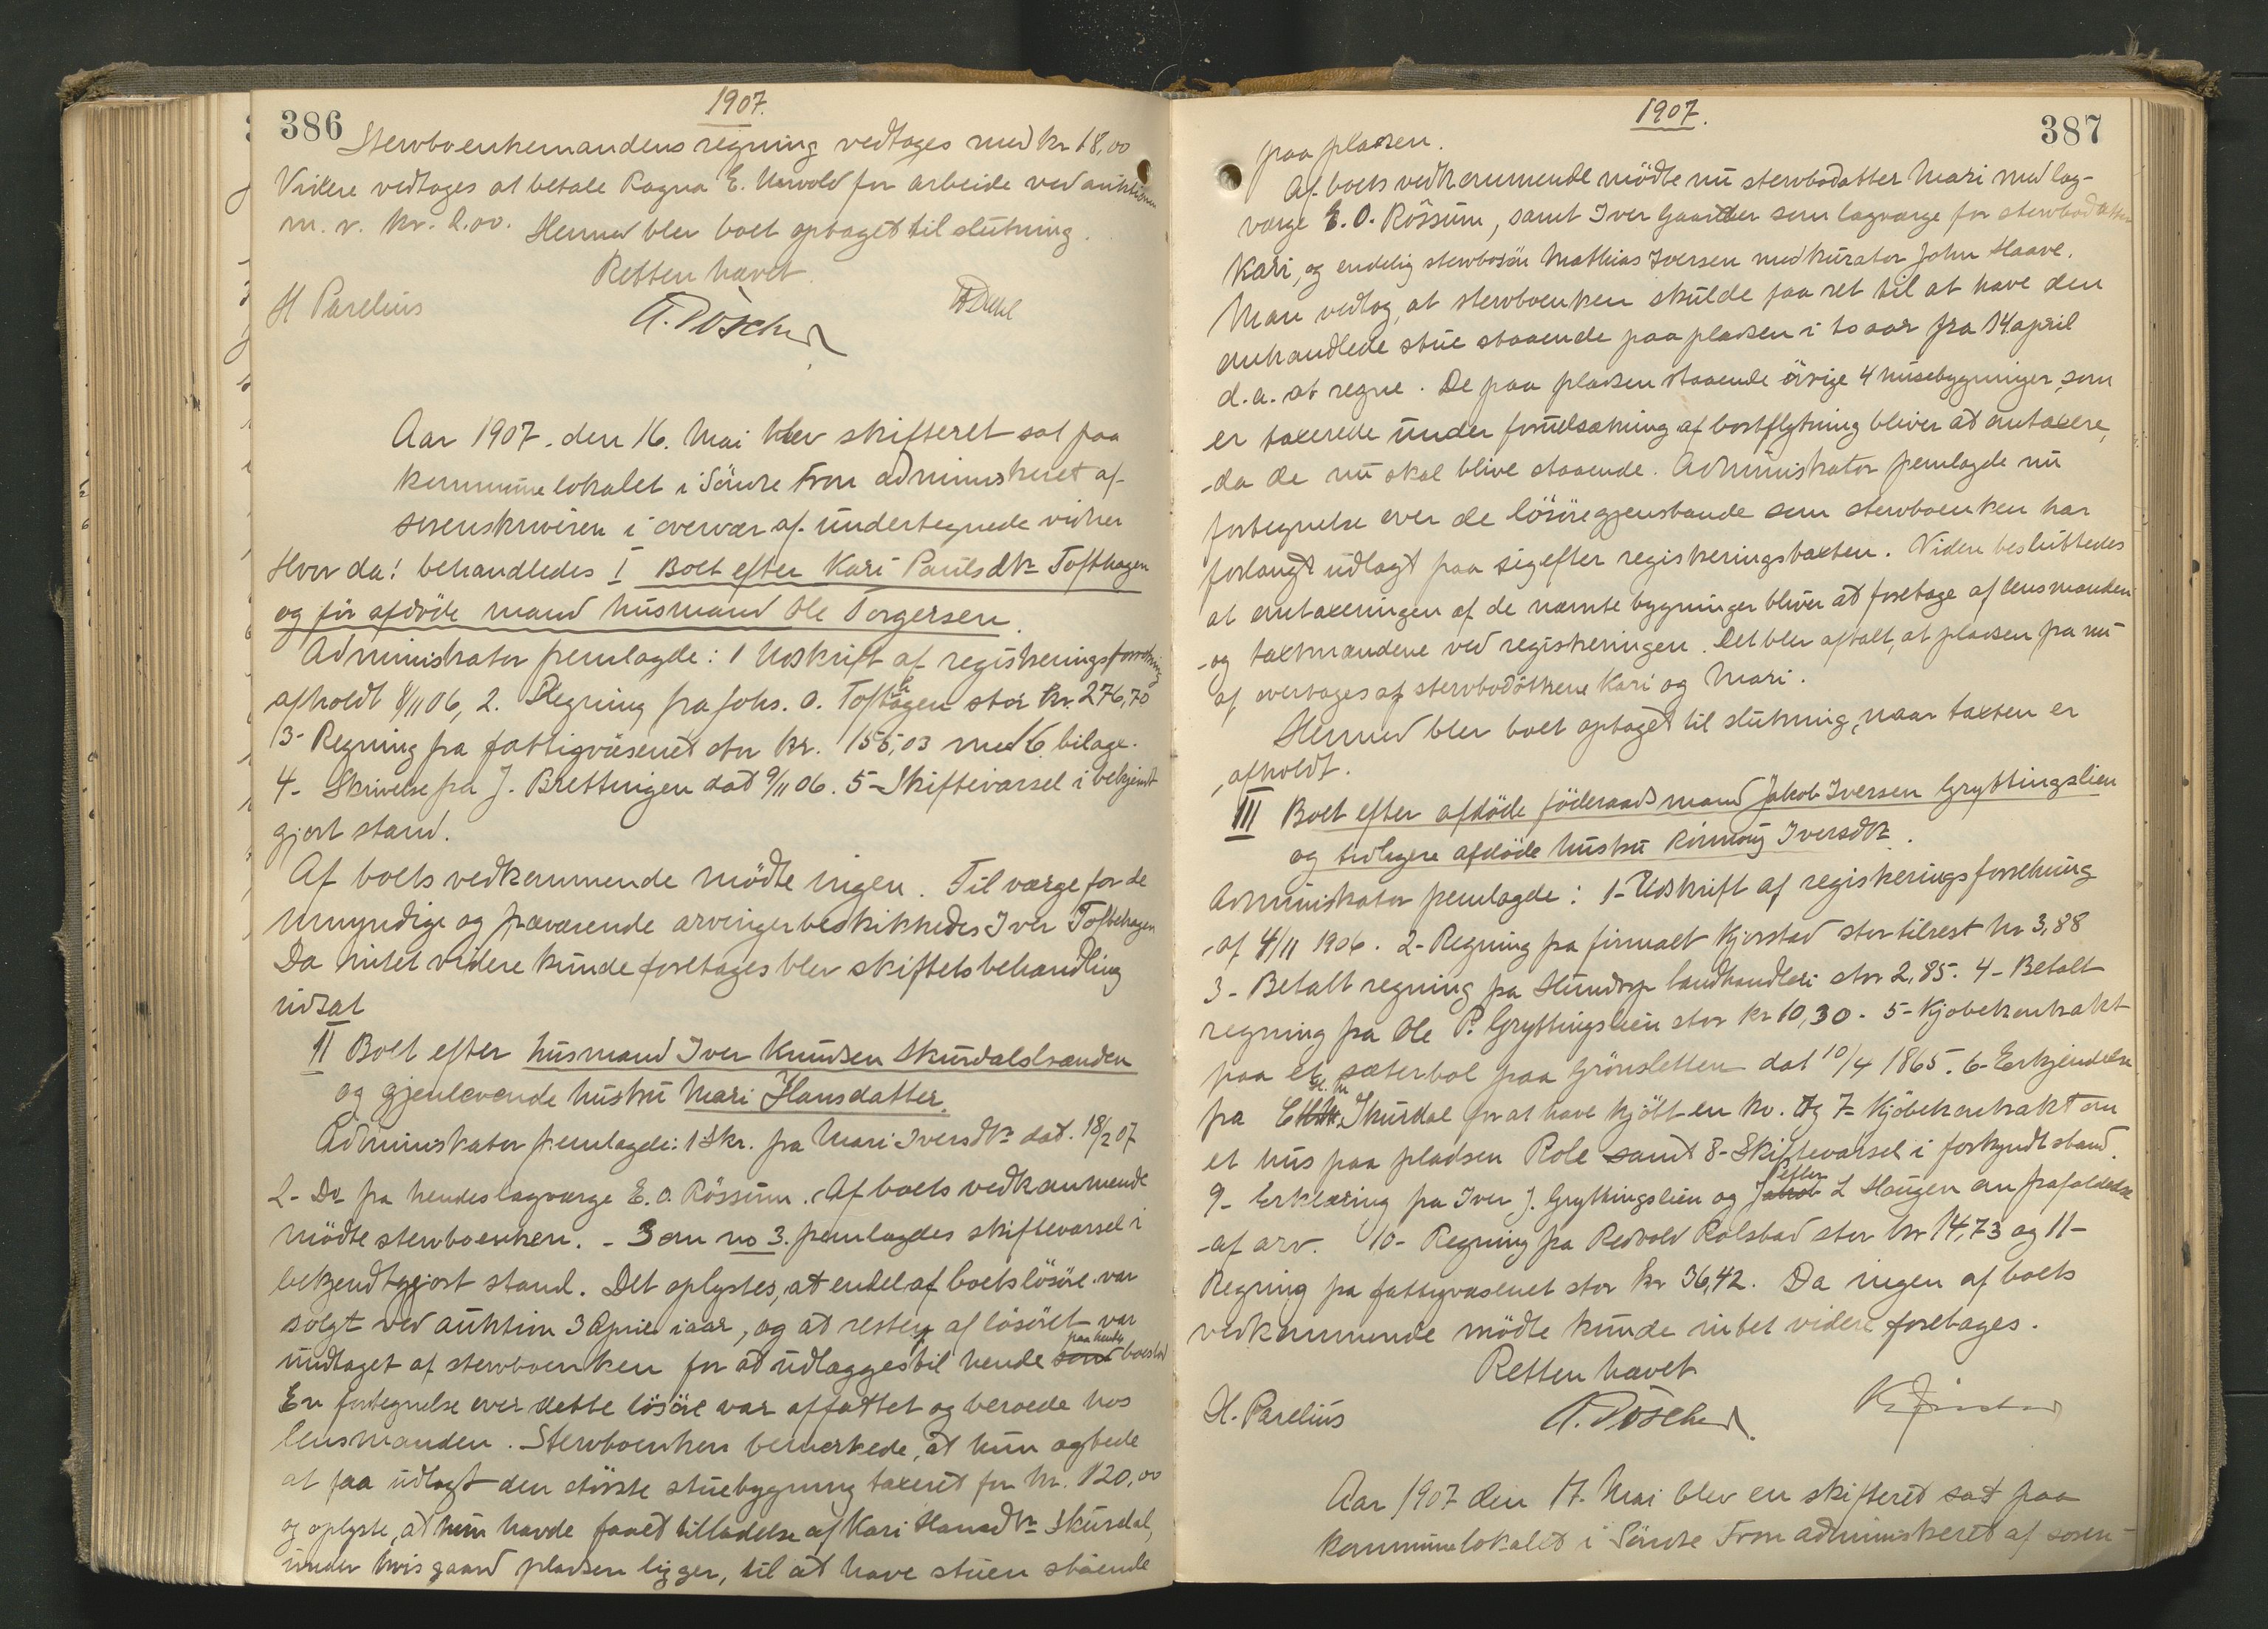 386
1907.
Stervboenkemandens regning vedtages med kr 18,00
Videre vedtages at betale Ragna E. for arbeide ved auktionen
m. v. kr. 2.00. Hermed blev boet optaget til slutning.
Retten hævet
H Parelius
Aar 1907. den 16. Mai blev skifteret sat paa
kommunelokalet i Söndre Fron administreret af
sorenskriveren i overvær af undertegnede vidner
Hvor da! behandledes I Boet efter Kari Paulsdtr Tofthagen
og för afdöde mand husmand Ole Torgersen.
Administrator fremlagde: 1 Udskrift af registreringsforretning
afholdt 8/11 06, 2. Regning fra Johs. O. Tofthagen stor kr. 276,70
3- Regning fra fattigväsenet stor kr. 155,03 med 6 bilage.
4- Skrivelse fra J. Brettingen dat 9/11 06. 5- Skiftevarsel i bekjendt
gjort stand.
Af boets vedkommende mödte ingen. Til værge for de
umyndige og fraværende arvinger beskikkedes Iver Tofthagen
Da intet videre kunde foretages blev skiftets behandling
udsat
II Boet efter husmand Iver Knudsen Skurdalsbrænden
og gjenlevende hustru Mari Hansdatter.
Administrator fremlagde: 1 Skr. fra Mari Iversdtr dat. 18/2 07
2- Do fra hendes lagværge E. O. Rössum. Af boets vedkommende
mödte stervboenken. - Som no 3. fremlagdes skiftevarsel i
bekjendtgjort stand. Det oplystes, at endel af boets lösöre var
solgt ved auktion 3 April iaar, og at resten af lösöret var
undtaget af stervboenken for at udlægges til hende paa hendes boeslod
En fortegnelse over dette lösöre var affattet og beroede hos
lensmanden. Stervboenken bemerkede, at hun agtede
at faa udlagt den störste stuebygning taxeret for kr. 120,00
og oplyste, at hun havde faaet tilladelse af Kari Hansdtr Skurdal,
under hvis gaard pladsen ligger, til at have stuen stående
387
1907.
paa pladsen.
Af boets vedkommende mödte nu stervbodatter Mari med lag-
værge E. O. Rössum, samt Iver Gaarder som lagværge for stervbodatter
Kari, og endelig stervbosön Mathias Iversen med kurator John Haave.
Man vedtog, at stervboenken skulde faa ret til at have den
omhandlede stue staaende paa pladsen i to aar fra 14 april
d. a. at regne. De paa pladsen staaende övrige 4 husebygninger, som
er taxerede under forudsætning af bortflytning bliver at omtaxere,
da de nu skal blive staaende. Administrator fremlagde nu
fortegnelse over de lösöregjenstande som stervboenken har
forlangt udlagt paa sig efter registreringstaxten. Videre besluttedes
at omtaxeringen af de nævnte bygninger bliver at foretage af lensmanden
og taxtmændene ved registreringen. Det blev aftalt, at pladsen fra nu
af overtages af stervbodöttrene Kari og Mari.
Hermed blev boet optaget til slutning, naar taxten er
afholdt.
III Boet efter afdöde föderaadsmand Jakob Iversen Gryttingslien
og tidligere afdöde hustru Rönnaug Iversdtr.
Administrator fremlagde: 1- Udskrift af registreringsforretning
af 4/11 1906. 2- Regning fra firmaet Kjorstad stor tilrest kr 3,88
3- Betalt regning fra Hundorp landhandleri stor 2,85. 4- Betalt
regning fra Ole P. Gryttingslien stor kr 10,30. 5- Kjöbekontrakt
paa et sæterbol paa Grönsletten dat 10/4 1865. 6- Erkjendelse
fra Skurdal for at have kjöbt en ko. Og 7- Kjöbekontrakt om
et hus paa pladsen Role samt 8- Skiftevarsel i forkyndt stand.
9- Erklæring fra Iver J. Gryttingslien og Petter L Haugen om frafaldelse
af arv. 10- Regning fra Redvold Rolstad stor kr 14,73 og 11-
Regning fra fattigvæsenet stor kr 36,42. Da ingen af boets
vedkommende mödte kunde intet videre foretages.
Retten hævet
H. Parelius
Aar 1907 den 17. Mai blev en skifteret sat paa
kommunelokalet i Söndre Fron administreret af soren-